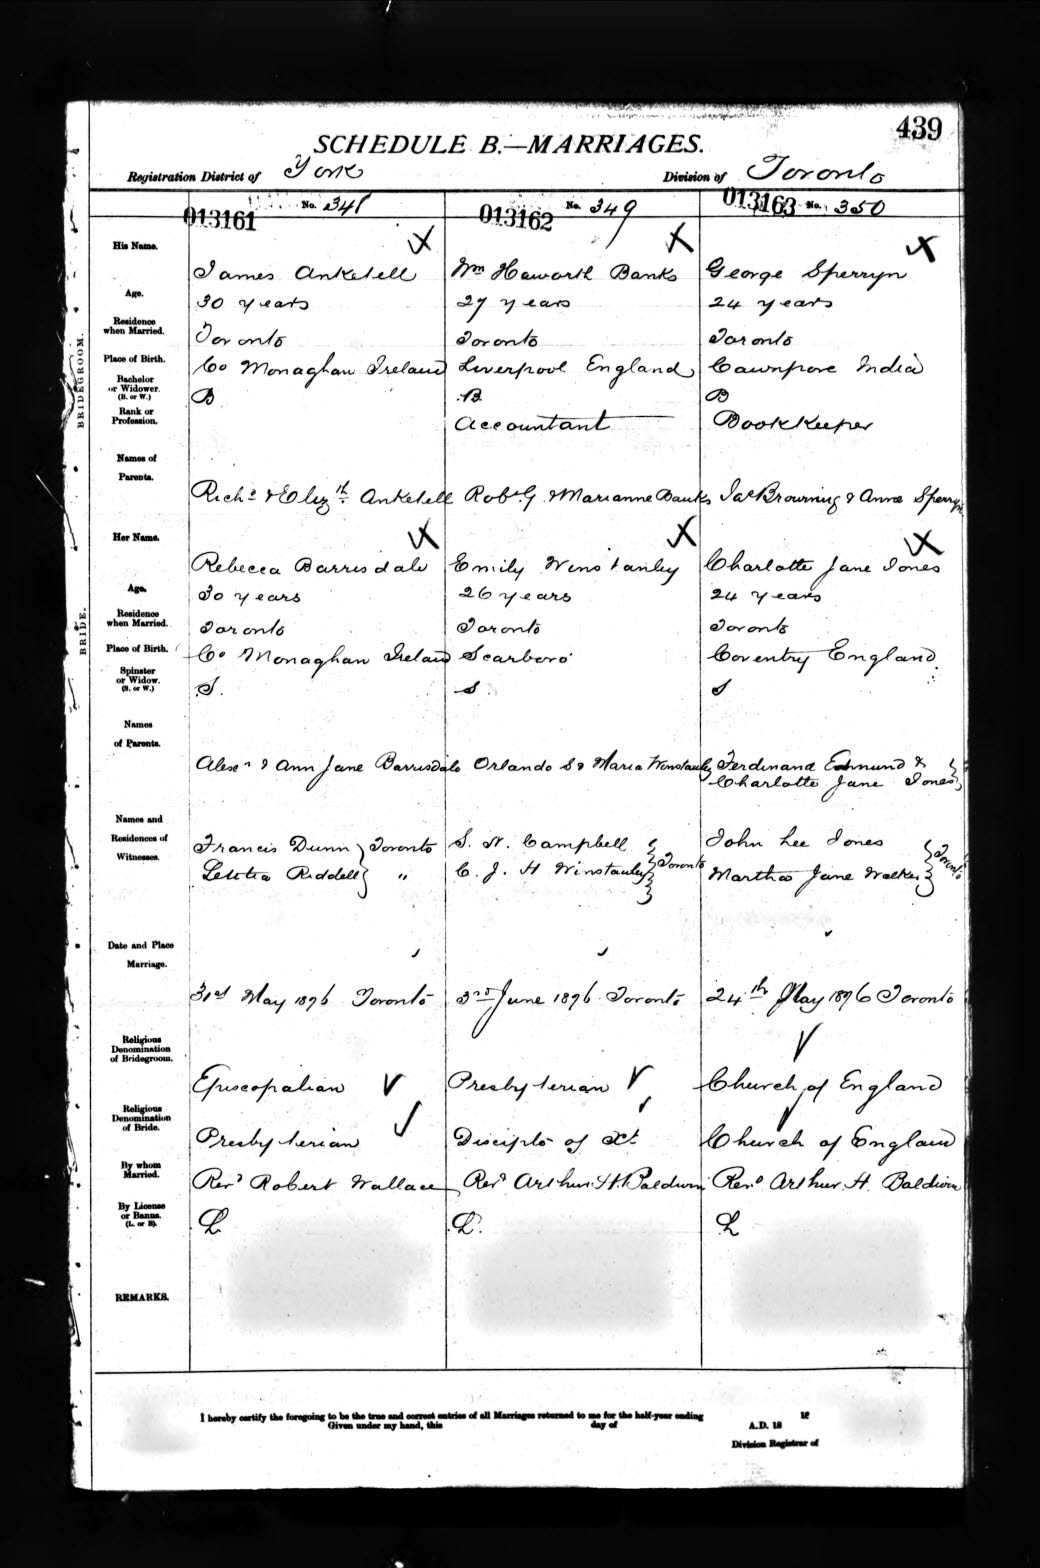 439
SCHEDULE B.—MARRIAGES.
Registration District of York Division of Toronto
013161 No. 348
013162 No. 349
013163 No. 350
His Name.
James Anketell
Wm Haworth Banks
George Sperryn
Age.
30 years
27 years
24 years
Residence
when Married.
Toronto
Toronto
Toronto
Place of Birth.
Co Monaghan Ireland
Liverpool England
Cawnpore India
Bachelor
or Widower.
(B. or W.)
B
B
B
Rank or
Profession.
Accountant
BookKeeper
Names of
Parents.
Richd & Elizth Anketell
Robt G & Marianne Banks
Jas Browning & Anna Sperryn
BRIDEGROOM.
Her Name.
Rebecca Barrisdale
Emily Winstanley
Charlotte Jane Jones
Age.
30 years
26 years
24 years
Residence
when Married.
Toronto
Toronto
Toronto
Place of Birth.
Co Monaghan Ireland
Scarboro
Coventry England
Spinster
or Widow.
(S. or W.)
S.
S
S
Names
of Parents.
Alexr & Ann Jane Barrisdale
Orlando S & Maria Winstanley
Ferdinand Edmund &
Charlotte Jane Jones
BRIDE.
Names and
Residences of
Witnesses.
Francis Dunn Toronto
Letitia Riddell "
S. W. Campbell
C. J. H Winstanley Toronto
John Lee Jones
Martha Jane Walker Toronto
Date and Place
Marriage.
31st May 1896 Toronto
3rd June 1896 Toronto
24th May 1896 Toronto
Religious
Denomination
of Bridegroom.
Episcopalian
Presbyterian
Church of England
Religious
Denomination
of Bride.
Presbyterian
Disciple of Xt
Church of England
By whom
Married.
Revd Robert Wallace
Revd Arthur H. Baldwin
Revd Arthur H. Baldwin
By License
or Banns.
(L. or B).
L
L.
L
REMARKS.
I hereby certify the foregoing to be the true and correct entries of all Marriages returned to me for the half-year ending 18
Given under my hand, this day of A.D. 18
Division Registrar of